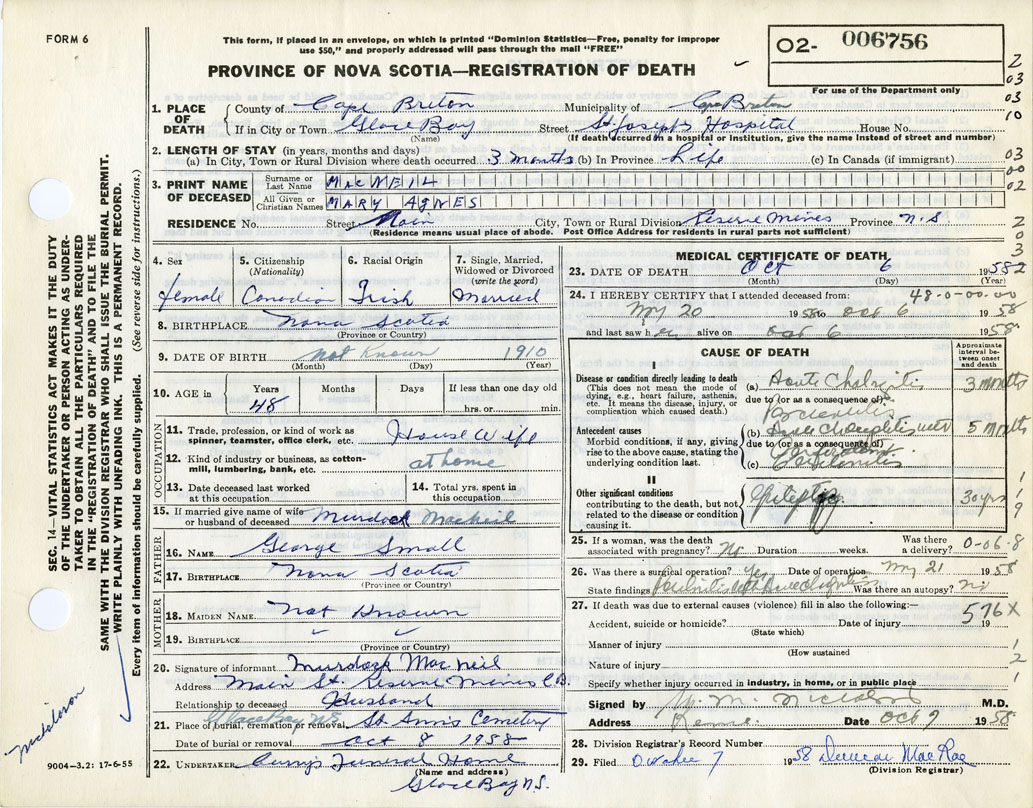 FORM 6
This form, if placed in an envelope, on which is printed "Dominion Statistics—Free, penalty for improper
use $50," and properly addressed will pass through the mail "FREE"
O2- 006756
PROVINCE OF NOVA SCOTIA—REGISTRATION OF DEATH
For use of the Department only
2
03
03
10
1. PLACE OF DEATH County of Cape Breton Municipality of Cape Breton
If in City or Town Glace Bay Street St. Joseph's Hospital House No.
(Name) (If death occurred in a hospital or institution, give the name instead of street and number)
2. LENGTH OF STAY (in years, months and days)
(a) In City, Town or Rural Division where death occurred 3 months (b) In Province Life (c) In Canada (if immigrant)
03
00
02
3. PRINT NAME OF DECEASED Surname or Last Name MACNEIL
All Given or Christian Names MARY AGNES
RESIDENCE No. Street Main City, Town or Rural Division Reserve Mines Province N.S
(Residence means usual place of abode. Post Office Address for residents in rural parts not sufficient)
2
0
3
2
4. Sex female
5. Citizenship (Nationality) Canadian
6. Racial Origin Irish
7. Single, Married, Widowed or Divorced (write the word) Married
8. BIRTHPLACE Nova Scotia
(Province or Country)
9. DATE OF BIRTH not Known 1910
(Month) (Day) (Year)
10. AGE in Years 48 Months Days If less than one day old hrs. or min.
OCCUPATION
11. Trade, profession, or kind of work as spinner, teamster, office clerk, etc. House Wife
12. Kind of industry or business, as cotton-mill, lumbering, bank, etc. at home
13. Date deceased last worked at this occupation
14. Total yrs. spent in this occupation
15. If married give name of wife or husband of deceased Murdock Macneil
FATHER
16. NAME George Small
17. BIRTHPLACE Nova Scotia
(Province or Country)
MOTHER
18. MAIDEN NAME Not Known
19. BIRTHPLACE
(Province or Country)
20. Signature of informant Murdock Mac Neil
Address Main St. Reserve Mines C.B.
Relationship to deceased Husband
21. Place of burial, cremation or removal Glace Bay NS St Ann's Cemetery
Date of burial or removal Oct 8 1958
22. UNDERTAKER Curry's Funeral Home
(Name and address)
Glace Bay N.S.
MEDICAL CERTIFICATE OF DEATH
23. DATE OF DEATH Oct 6 1958
(Month) (Day) (Year)
24. I HEREBY CERTIFY that I attended deceased from: 48-0-00-00
May 20 1958 to Oct 6 1958
and last saw her alive on Oct 6 1958
CAUSE OF DEATH
Approximate interval between onset and death
I
Disease or condition directly leading to death
(This does not mean the mode of dying, e.g., heart failure, asthenia, etc. It means the disease, injury, or complication which caused death.)
(a) Acute 3 months
due to (or as a consequence of)
Antecedent causes
Morbid conditions, if any, giving rise to the above cause, stating the underlying condition last.
(b) 5 months
due to (or as a consequence of)
(c) Peritonitis
II
Other significant conditions
contributing to the death, but not related to the disease or condition causing it.
30 yrs
1
1
9
25. If a woman, was the death associated with pregnancy? No Duration weeks. Was there a delivery? 0-06-8
26. Was there a surgical operation? Yes Date of operation May 21 1958
State findings Was there an autopsy? No
27. If death was due to external causes (violence) fill in also the following:—
576X
Accident, suicide or homicide? Date of injury 19
(State which)
Manner of injury
(How sustained)
Nature of injury
Specify whether injury occurred in industry, in home, or in public place
1
2
1
Signed by M. Nicholson M.D.
Address Date Oct 7 1958
28. Division Registrar's Record Number
29. Filed October 7 1958 Duncan MacRae
(Division Registrar)
SEC. 14—VITAL STATISTICS ACT MAKES IT THE DUTY
OF THE UNDERTAKER OR PERSON ACTING AS UNDER-
TAKER TO OBTAIN ALL THE PARTICULARS REQUIRED
IN THE "REGISTRATION OF DEATH" AND TO FILE THE
SAME WITH THE DIVISION REGISTRAR WHO SHALL ISSUE THE BURIAL PERMIT.
WRITE PLAINLY WITH UNFADING INK. THIS IS A PERMANENT RECORD.
Every item of information should be carefully supplied. (See reverse side for instructions.)
Nicholson
9004-3.2: 17-6-55